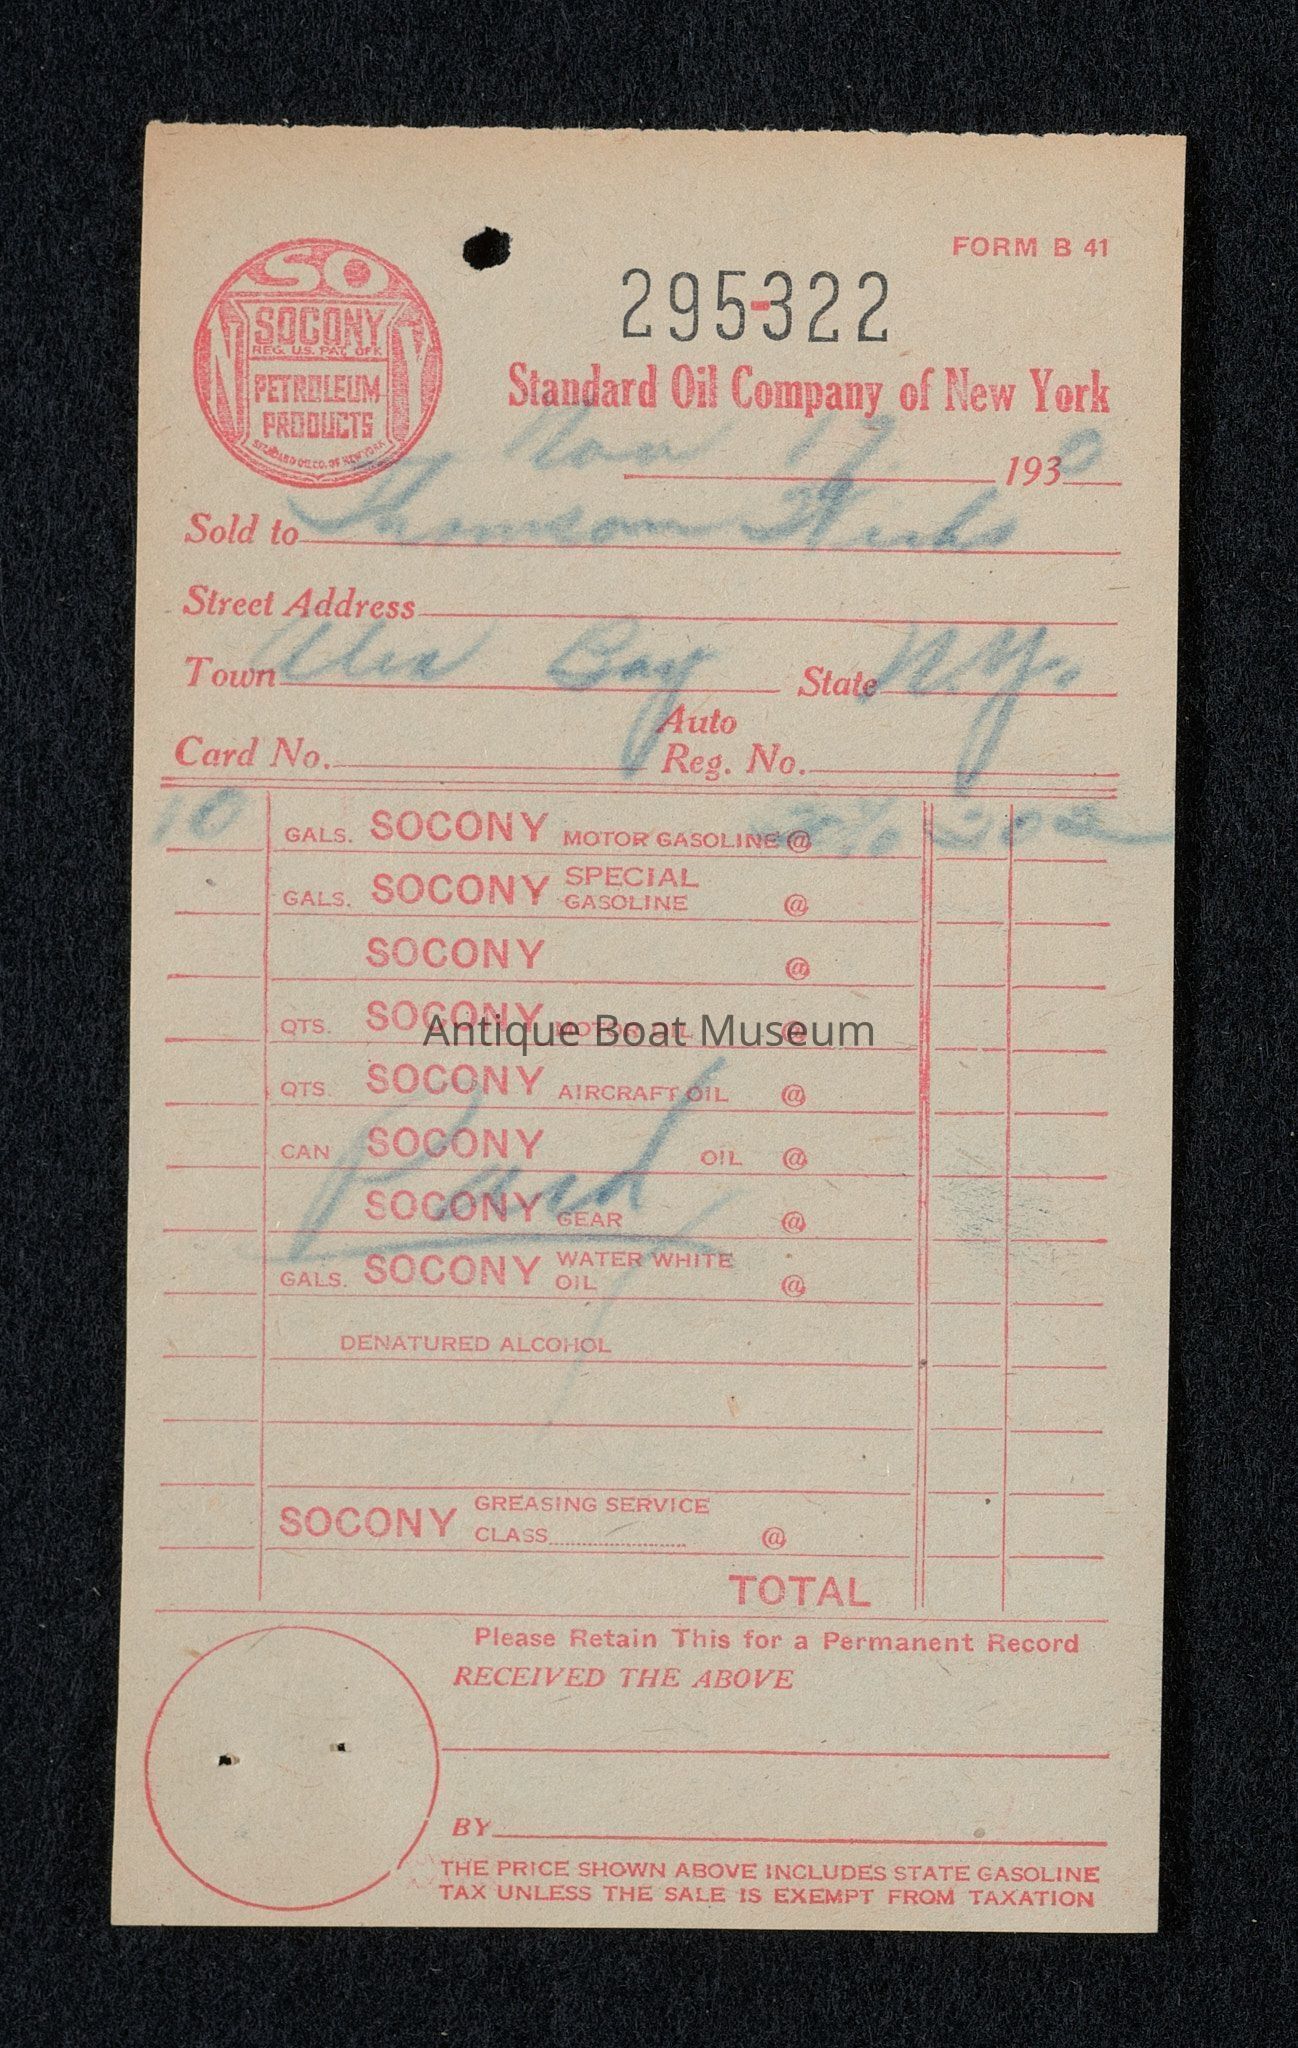 FORM B 41
SO
SOCONY
REG. U.S. PAT. OFF.
PETROLEUM
PRODUCTS
STANDARD OIL CO. OF NEW YORK
NY
295-322
Standard Oil Company of New York
Nov 19 1930
Sold to Thomson
Street Address
Town Alex Bay State N.Y.
Card No. Auto Reg. No.
10 GALS. SOCONY MOTOR GASOLINE @
GALS. SOCONY SPECIAL GASOLINE @
SOCONY @
QTS. SOCONY MOTOR OIL @
Antique Boat Museum
QTS. SOCONY AIRCRAFT OIL @
CAN SOCONY OIL @
Paid
SOCONY GEAR @
GALS. SOCONY WATER WHITE OIL @
DENATURED ALCOHOL
SOCONY GREASING SERVICE
CLASS @
TOTAL
Please Retain This for a Permanent Record
RECEIVED THE ABOVE
BY
THE PRICE SHOWN ABOVE INCLUDES STATE GASOLINE
TAX UNLESS THE SALE IS EXEMPT FROM TAXATION